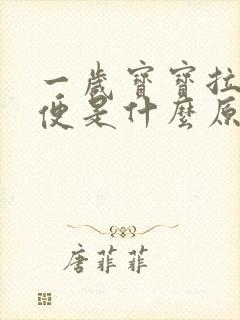 一歲寶寶拉
便是什麼原
唐菲菲